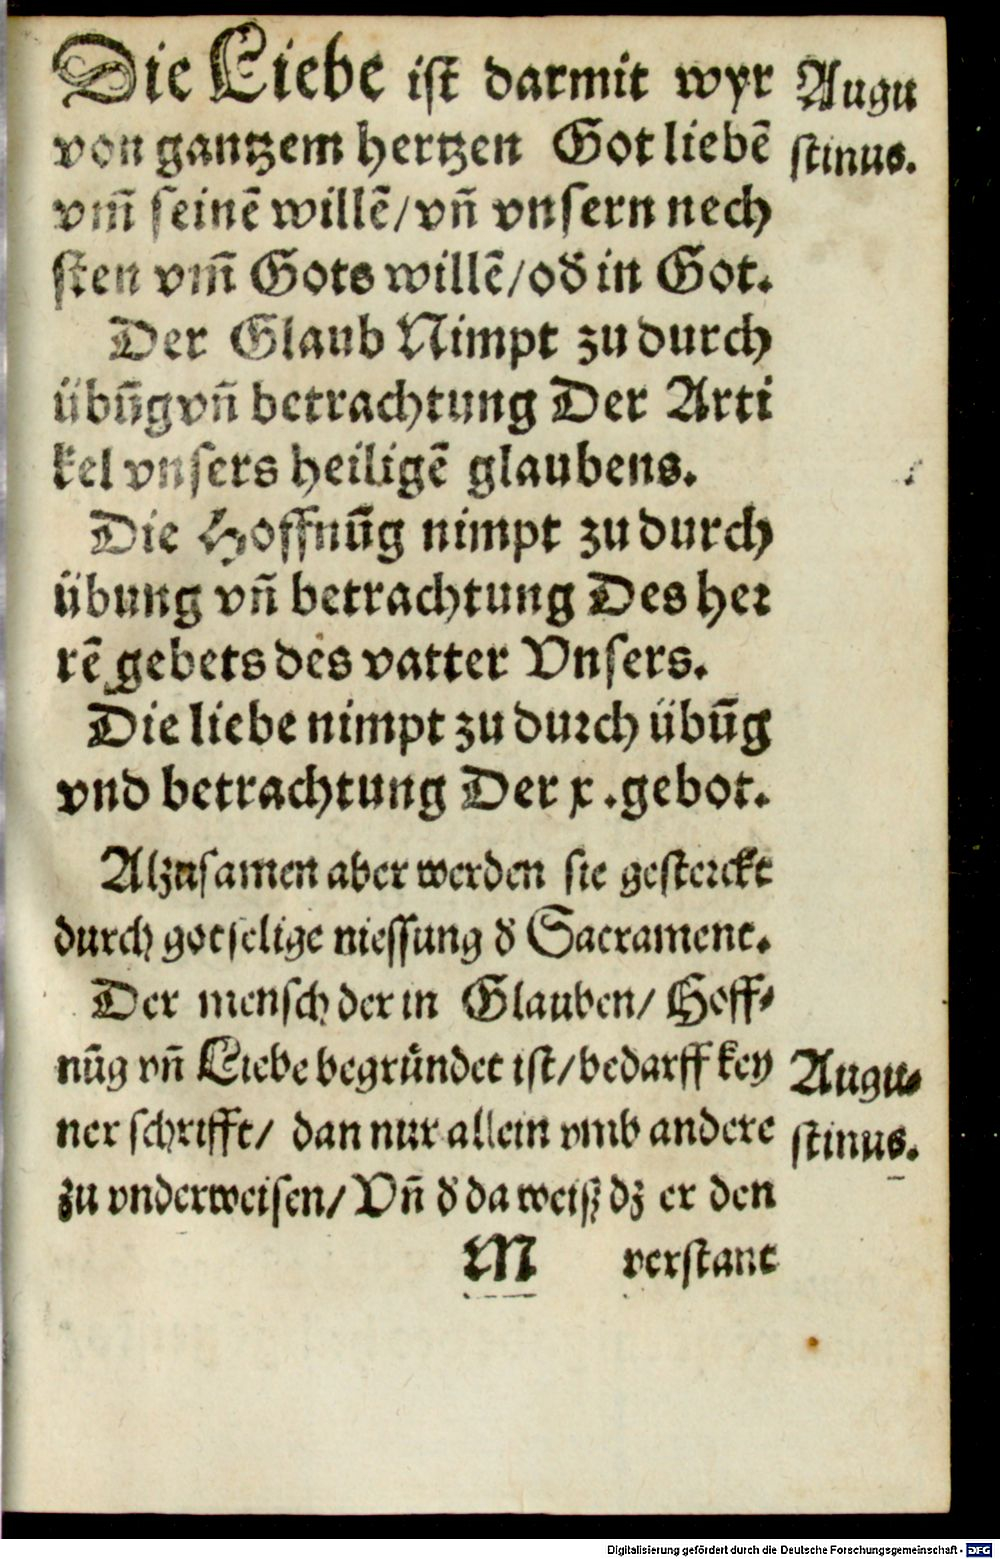 Die Liebe ist darmit wyr
Augu
von gantzem hertzen Got liebē
stinus.
vm̄ seinē willē/vn̄ vnsern nech
sten vm̄ Gots willē/ođ in Got.
Der Glaub Nimpt zu durch
übūg vn̄ betrachtung Der Arti
kel vnsers heiligē glaubens.
Die Hoffnūg nimpt zu durch
übung vn̄ betrachtung Des her
rē gebets des vatter Vnsers.
Die liebe nimpt zu durch übūg
vnd betrachtung Der x. gebot.
Alzusamen aber werden sie gesterckt
durch gotselige niessung đ Sacrament.
Der mensch der in Glauben/ Hoff-
nūg vn̄ Liebe begründet ist/bedarff key
Augu-
ner schrifft/ dan nur allein vmb andere
stinus.
zu vnderweisen/ Vn̄ đ da weisz dz er den
M verstant
Digitalisierung gefördert durch die Deutsche Forschungsgemeinschaft - DFG